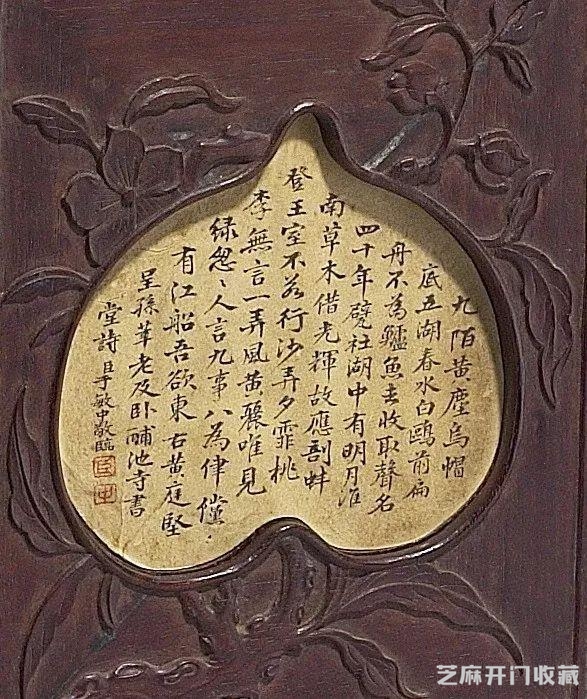 九陌黃塵烏帽
底五湖春水白鷗前扁
舟不為鱸魚去收取聲名
四十年甓社湖中有明月淮
南草木借光輝故應剖蚌
登王室不若行沙弄夕霏桃
李無言一再風黃鸝唯見
綠怱〻人言九事八為律儻
有江船吾欲東右黃庭堅
呈孫莘老及卧酺池寺書
堂詩 臣于敏中敬臨
臣
中
芝麻开门收藏